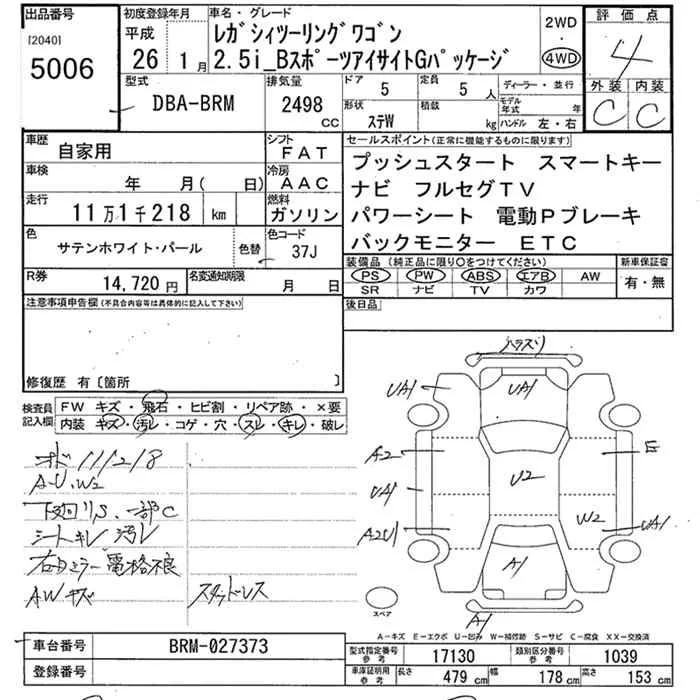 出品番号
[2040]
5006
初度登録年月
平成
26 1 月
車名・グレード
レガシィツーリングワゴン
2.5i_BスポーツアイサイトGパッケージ
2WD
・
4WD
評価点
4
外装 内装
C C
型式
DBA-BRM
排気量
2498 CC
ドア 5
定員 5 人
形状 ステW
積載 kg
ディーラー・並行
モデル年式 年
ハンドル 左・右
車歴
自家用
シフト
FAT
車検
年 月( 日)
冷房
AAC
走行
11万1千218 km
燃料
ガソリン
色
サテンホワイト・パール
色替
色コード
37J
R券
14,720円
名変通知期限
月 日
セールスポイント(正常に機能するものに限ります)
プッシュスタート スマートキー
ナビ フルセグTV
パワーシート 電動Pブレーキ
バックモニター ETC
装備品(純正品に限り○をつけてください)
PS PW ABS エアB AW
SR ナビ TV カワ
新車保証書
有・無
注意事項申告欄(不具合内容等は具体的に記入して下さい)
後日品
修復歴 有〔箇所 〕
検査員記入欄
FW キズ・飛石・ヒビ割・リペア跡・×要
内装 キズ・汚レ・コゲ・穴・スレ・キレ・破レ
オド 111218
A-U.W2
下廻りS、一部C
シートキレ 汚レ
右ミラー電格不良
AWキズ
スタッドレス
UA1
UA1
A2
E
UA1
U2
A2U1
W2
UA1
A1
A1
スペア
A-キズ E-エクボ U-凹み W-補修跡 S-サビ C-腐食 XX-交換済
車台番号
BRM-027373
登録番号
型式指定番号 参考
17130
類別区分番号 参考
1039
車庫証明用 参考
長さ 479 cm
幅 178 cm
高さ 153 cm